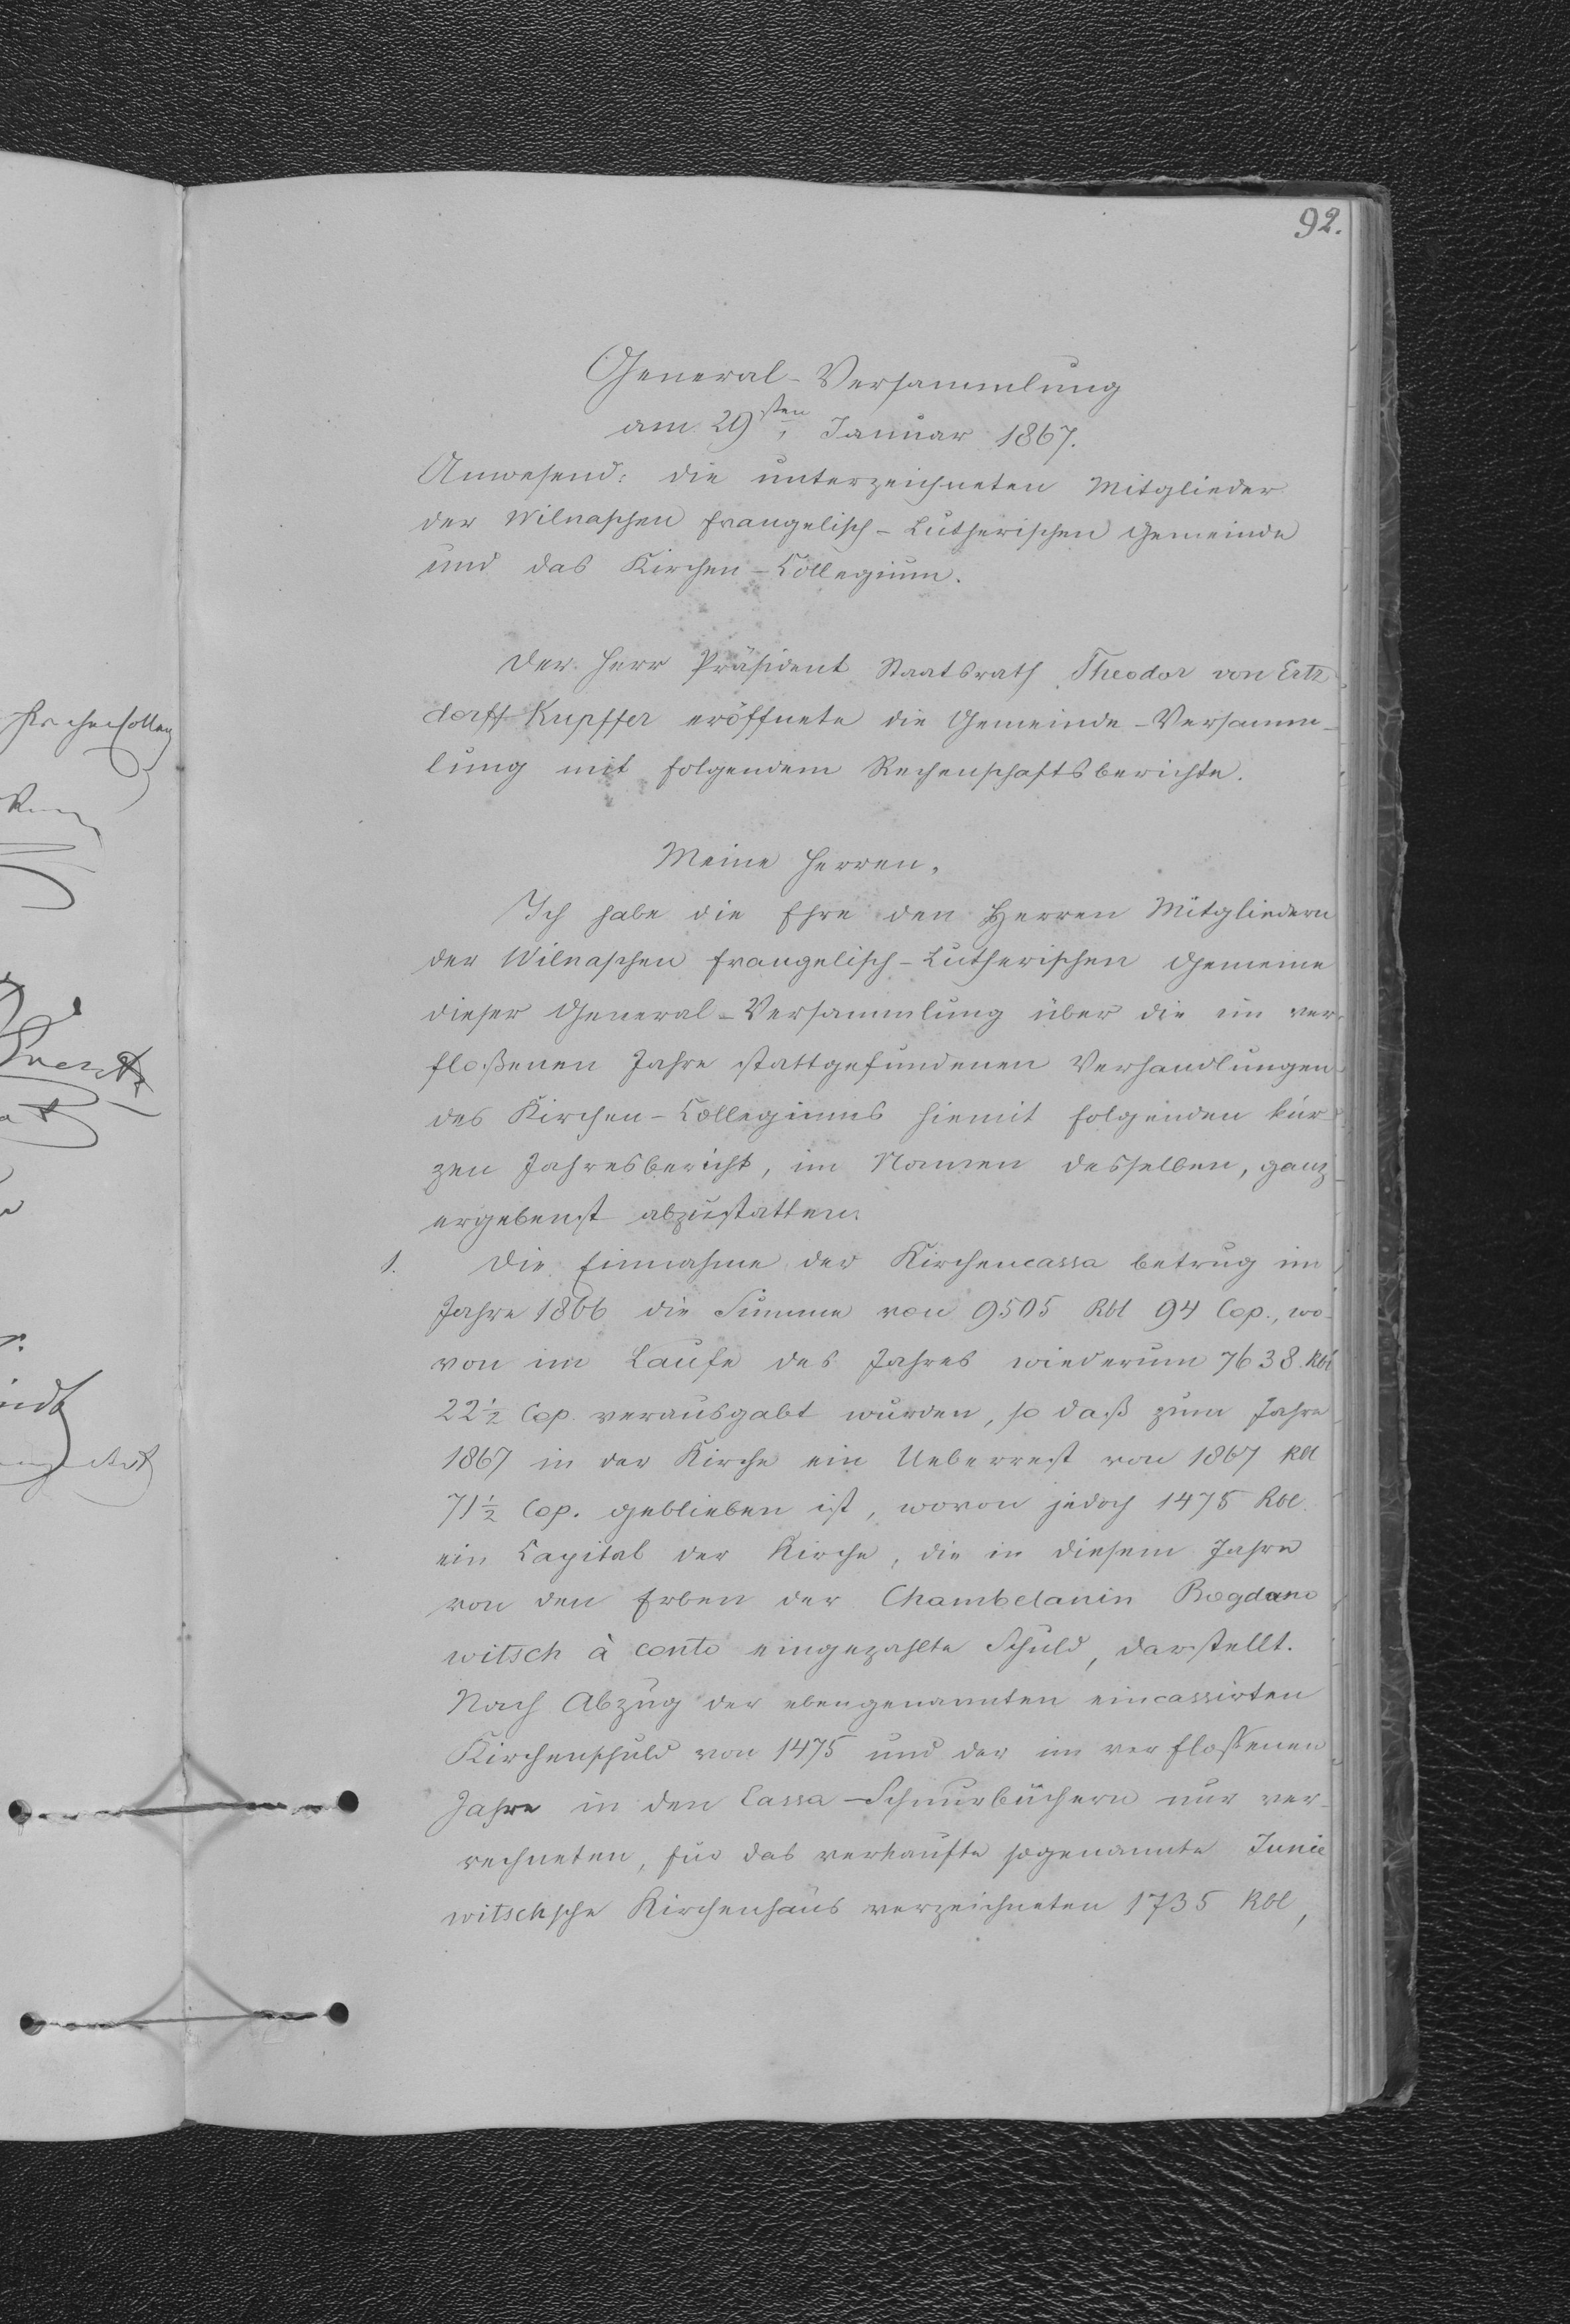 92.
General-Versammlung
am 29sten Januar 1867.
Anwesend: die unterzeichneten Mitglieder
der Wilnaschen Evangelisch-Lutherischen Gemeinde
und das Kirchen-Collegium.
Der Herr Präsident Staatsrath Theodor von Ertz
dorff Kupffer eröffnete die Gemeinde-Versamm-
lung mit folgendem Rechenschaftsberichte.
Meine Herren,
Ich habe die Ehre den Herren Mitgliedern
der Wilnaschen Evangelisch-Lutherischen Gemeine
dieser General-Versammlung über die im ver-
floßenen Jahre stattgefundenen Verhandlungen
des Kirchen-Collegiums hiemit folgenden kur-
zen Jahresbericht, im Namen desselben, ganz
ergebenst abzustatten.
1. Die Einnahme der Kirchencassa betrug im
Jahre 1866 die Summe von 9505 Rbl 94 Cop., wo-
von im Laufe des Jahres wiederum 7638 Rbl
22½ Cop. verausgabt wurden, so daß zum Jahre
1867 in der Kirche ein Ueberrest von 1867 Rbl
71½ Cop. geblieben ist, wovon jedoch 1475 Rbl.
ein Capital der Kirche, die in diesem Jahre
von den Erben der Chambelanin Bogdano
witsch à conto eingezahlte Schuld, darstellt.
Nach Abzug der ebengenannten eincassirten
Kirchenschuld von 1475 und der im verflossenen
Jahre in den Cassa-Schnurbüchern nur ver-
rechneten, für das verkaufte sogenannte Junie
witschsche Kirchenhaus verzeichneten 1735 Rbl,